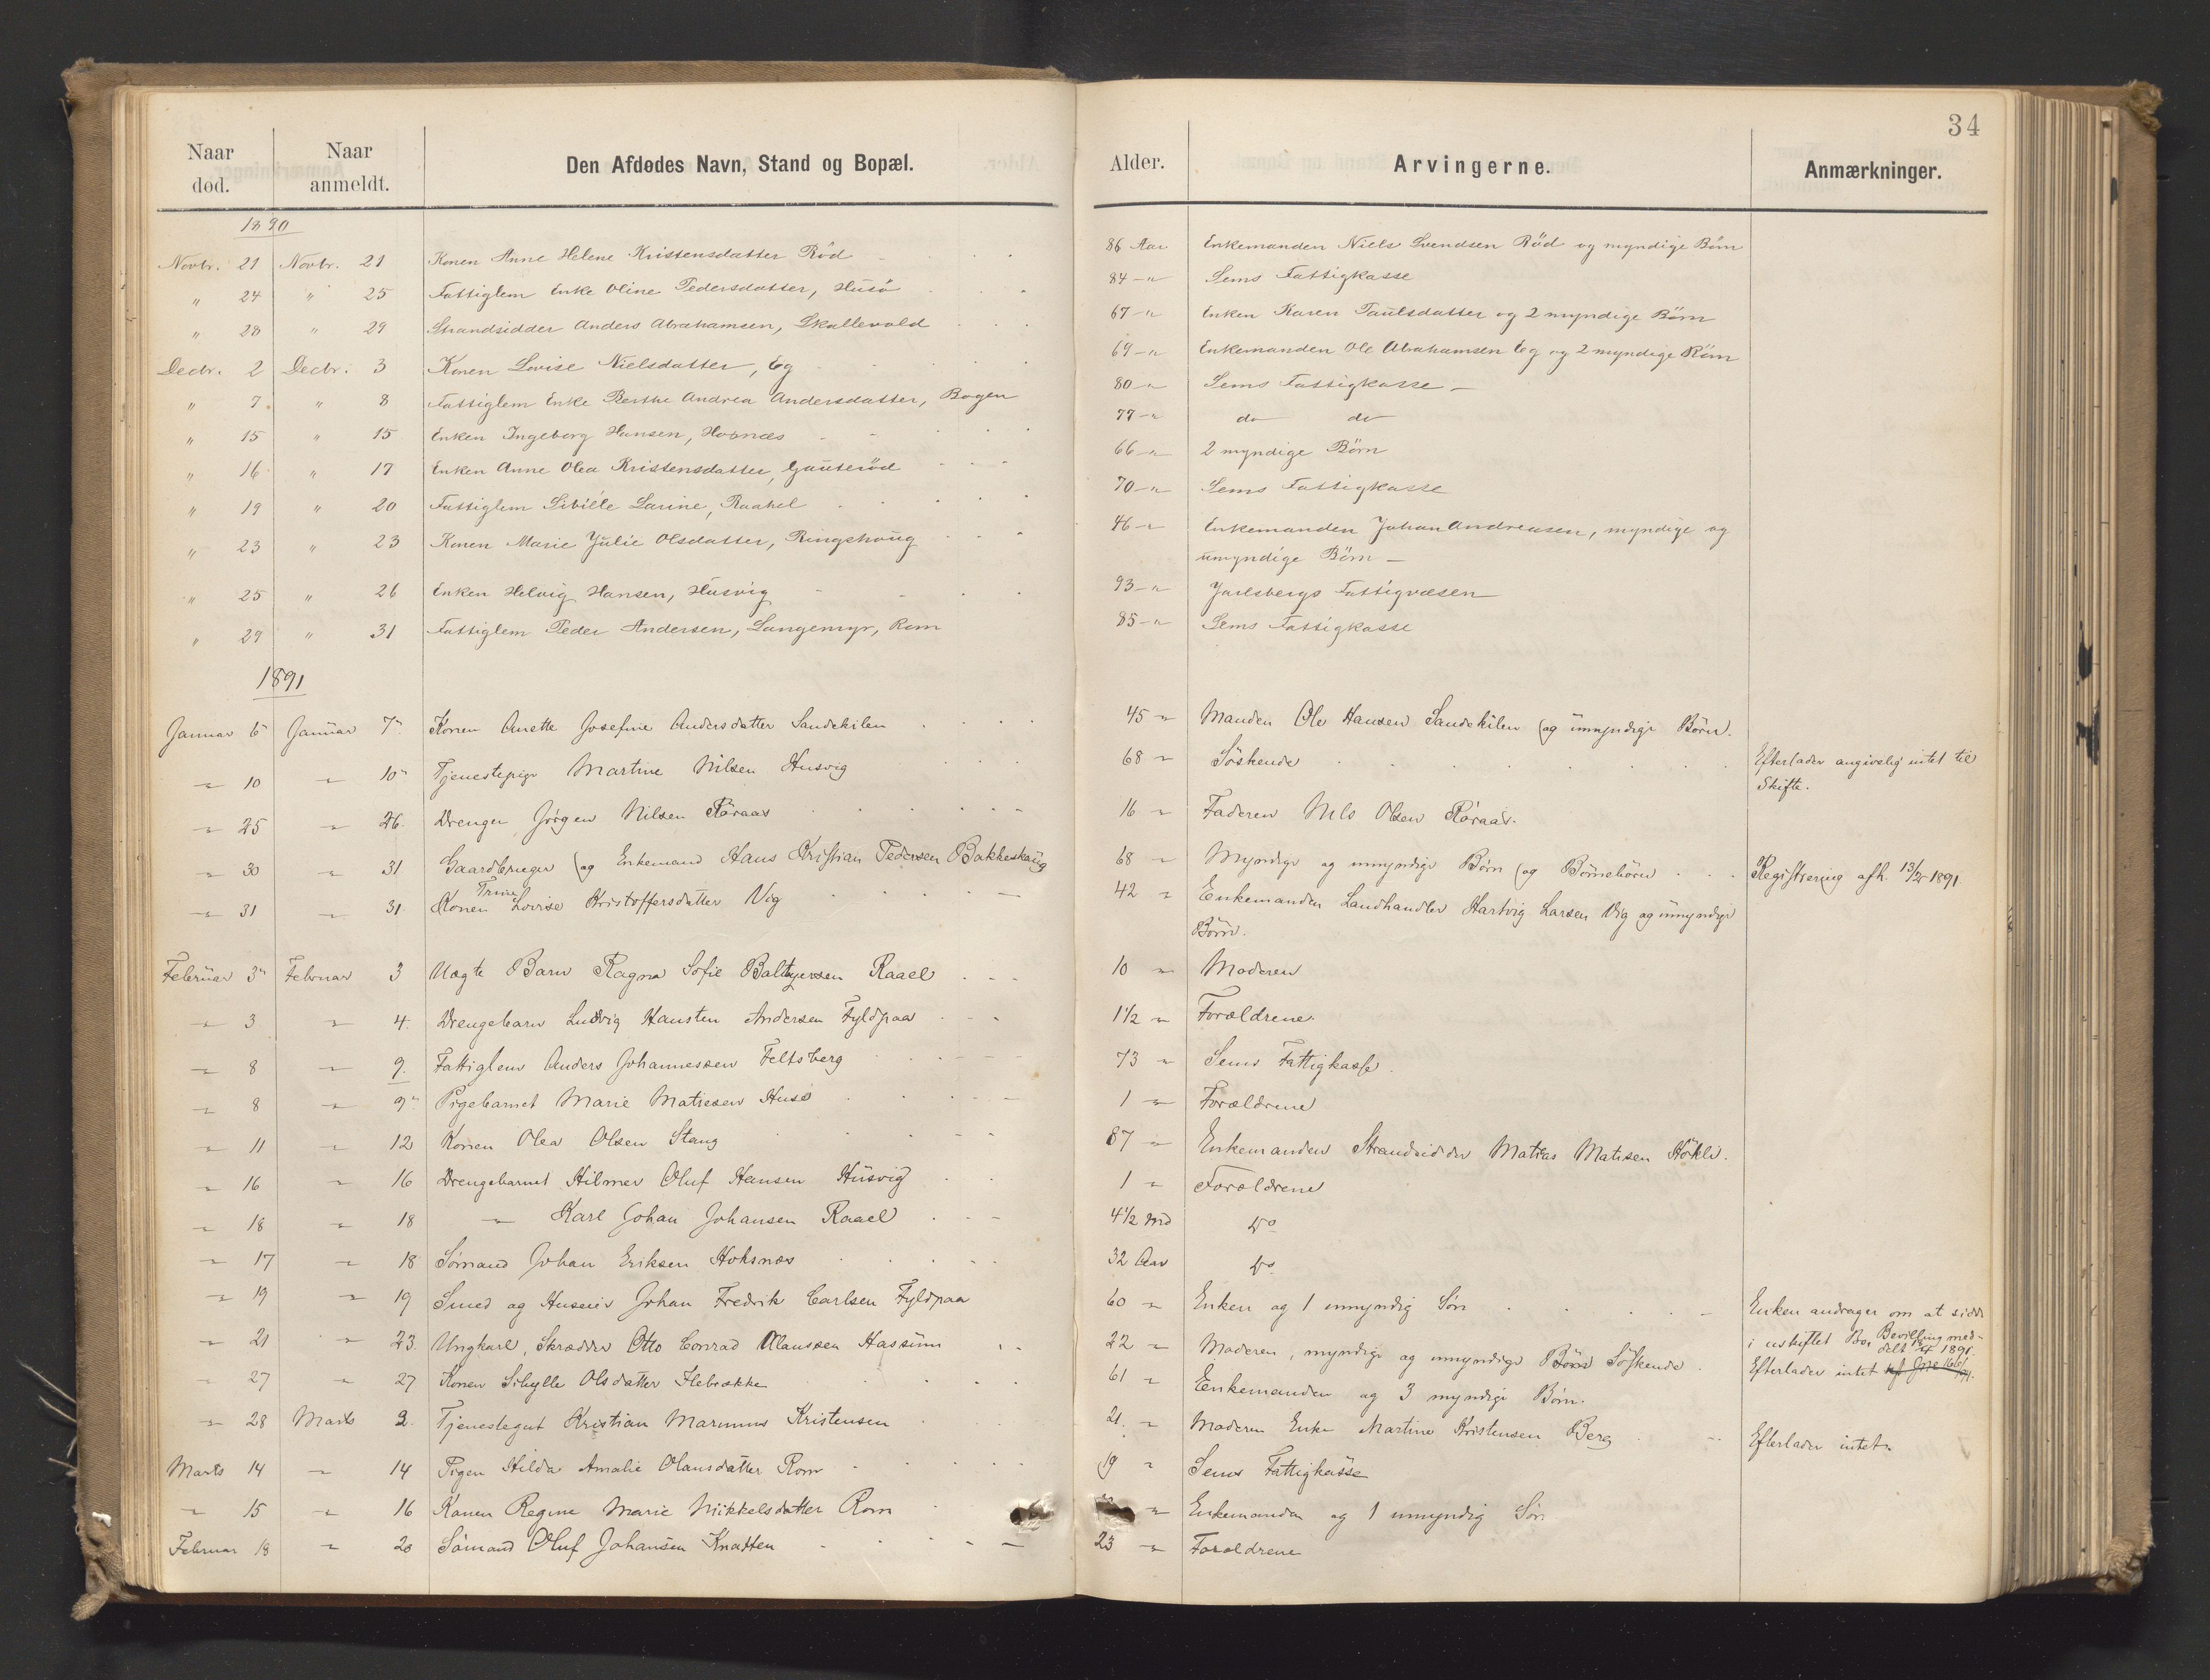 34
Naar død. Naar anmeldt. Den Afdødes Navn, Stand og Bopæl. Alder. Arvingerne. Anmærkninger.
1890
Novbr. 21 Novbr. 21 Konen Anne Helene Kristensdatter Röd 86 Aar Enkemanden Niels Svendsen Röd og myndige Börn
" 24 " 25 Fattiglem Enke Oline Pedersdatter, Husö 84 - " Sems Fattigkasse
" 28 " 29 Strandsidder Anders Abrahamsen, Skallevold 67 - " Enken Karen Paulsdatter og 2 myndige Börn
Decbr. 2 Decbr. 3 Konen Lovise Nielsdatter, Eg 69 - " Enkemanden Ole Abrahamsen Eg og 2 myndige Börn
" 7 " 8 Fattiglem Enke Berthe Andrea Andersdatter, Bogen 80 - " Sems Fattigkasse -
" 15 " 15 Enken Ingeborg Hansen, 77 - " do do
" 16 " 17 Enken Anne Olea Kristensdatter, Gauteröd 66 - " 2 myndige Börn
" 19 " 20 Fattiglem Sibille Larine, Raahel 70 - " Sems Fattigkasse
" 23 " 23 Konen Marie Julie Olsdatter, Ringshoug 46 - " Enkemanden Johan Andreasen, myndige og
umyndige Börn -
" 25 " 26 Enken Helvig Hansen, Husvig 93 - " Jarlsbergs Fattigvæsen
" 29 " 31 Fattiglem Peder Andersen, Langemyr, Rom 85 - " Sems Fattigkasse
1891
Januar 6 Januar 7 Konen Anette Josefine Andersdatter Sandekilen 45 " Manden Ole Hansen Sandekilen (og umyndige Börn.
" 10 " 10 Tjenestepige Martine Nilsen Husvig 68 " Söskende Efterlader angivelig intet til
Skifte.
" 25 " 26. Drengen Jörgen Nilsen Röraas 16 " Faderen Nils Olsen Röraas.
" 30 " 31 Gaardbruger (og Enkemand Hans Kristian Pedersen Bakkeskaug 68 " Myndige og umyndige Börn (og Börnebörn Registrering afh. 13/2 1891
" 31 " 31 Konen Trine Lovise Kristoffersdatter Vig 42 " Enkemanden Landhandler Hartvig Larsen Vig og umyndige
Börn.
Februar 3 Februar 3 Uægte Barn Ragna Sofie Baltzersen Raael 10 " Moderen
" 3 " 4. Drengebarn Ludvig Hansten Andersen Fyldpaa 1 1/2 " Forældrene.
" 8 " 9. Fattiglem Anders Johannessen Feltsberg 73 " Sems Fattigkasse.
" 8 " 9 Pigebarnet Marie Matiesen Husö 1 " Forældrene
" 11 " 12 Konen Olea Olsen Stang 87 " Enkemanden Strandsidder Matias Matisen
" 16 " 16 Drengebarnet Hilmer Oluf Hansen Husvig 1 " Forældrene
" 18 " 18 " Karl Johan Johansen Raael 4 1/2 Md Do
" 17 " 18 Sömand Johan Eriksen 32 Aar Do
" 19 " 19 Smed og Huseier Johan Fredrik Carlsen Fyldpaa 60 " Enken og 1 umyndig Sön Enken andrager om at sidde
i uskiftet Bo. Bevilling med-
delt 1891.
" 21 " 23. Ungkarl, Skrædder Otto Conrad Olaussen Hassum 22 " Moderen, myndige og umyndige Börn Söskende. Efterlader intet
" 27 " 27 Konen Sibylle Olsdatter Flebrække 61 " Eenkemanden og 3 myndige Börn.
" 28 Marts 2. Tjenestegut Kristian Marinius Kristensen 21. " Moderen Enke Martine Kristensen Berg Efterlader intet
Marts 14 " 14 Pigen Hilda Amalie Olausdatter Rom 19 " Sems Fattigkasse
" 15 " 16 Konen Regine Marie Mikkelsdatter Rom " Enkemanden og 1 umyndig Sön
Februar 18 " 20 Sömand Oluf Johansen Knatten 23 " Forældrene